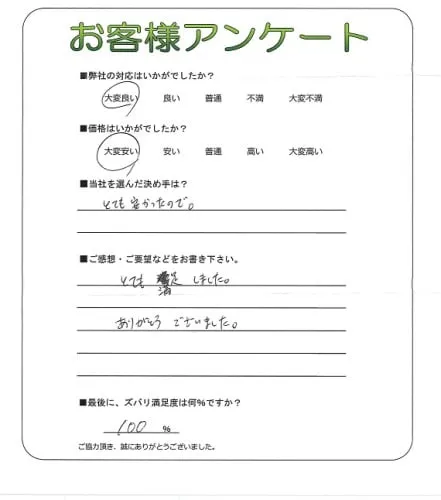 お客様アンケート
■弊社の対応はいかがでしたか?
大変良い 良い 普通 不満 大変不満
■価格はいかがでしたか?
大変安い 安い 普通 高い 大変高い
■当社を選んだ決め手は?
とても安かったので。
■ご感想・ご要望などをお書き下さい。
とても 満足 しました。
ありがとう ございました。
■最後に、ズバリ満足度は何%ですか?
100 %
ご協力頂き、誠にありがとうございました。